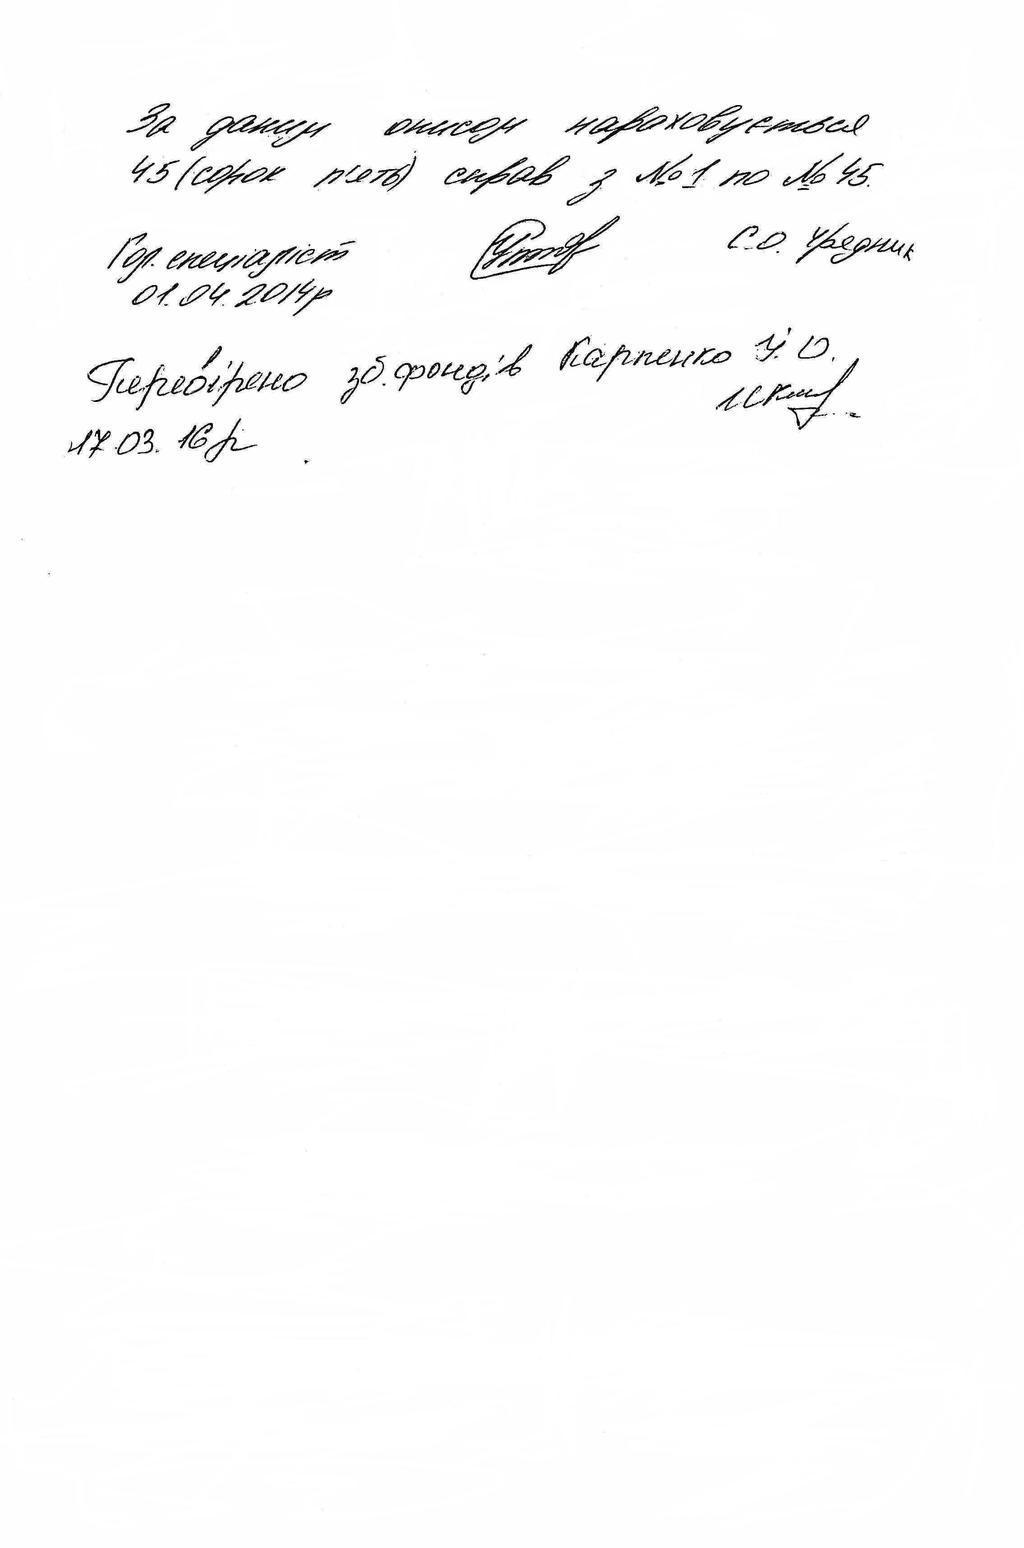 За даним описом нараховується
45 (сорок п'ять) справ з №1 по №45.
Гол. спеціаліст С.О. Чередник
01.04.2014р
Перевірено зб. фондів Карпенко І.О.
17.03.16р